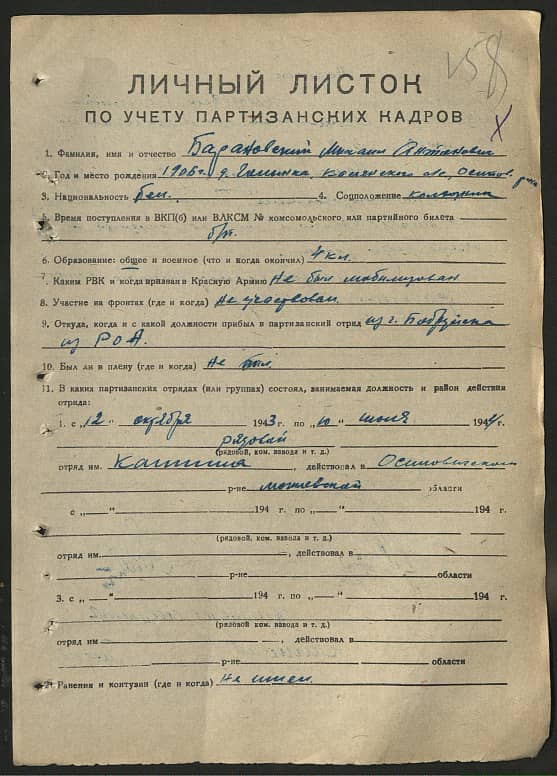 158
ЛИЧНЫЙ ЛИСТОК
ПО УЧЕТУ ПАРТИЗАНСКИХ КАДРОВ
1. Фамилия, имя и отчество Барановский Михаил Антонович
2. Год и место рождения 1906 г. д. с/с, Осипов. р-на
3. Национальность бел. 4. Соцположение колхозник
5. Время поступления в ВКП(б) или ВЛКСМ № комсомольского или партийного билета
б/п.
6. Образование: общее и военное (что и когда окончил) 4 кл.
7. Каким РВК и когда призван в Красную Армию Не был мобилизован
8. Участие на фронтах (где и когда) Не участвовал
9. Откуда, когда и с какой должности прибыл в партизанский отряд из г. Бобруйска
из РОА.
10. Был ли в плену (где и когда) Не был.
11. В каких партизанских отрядах (или группах) состоял, занимаемая должность и район действия
отряда:
1. с „12“ октября 1943 г. по „10“ июля 1944 г.
рядовой
(рядовой, ком. взвода и т. д.)
отряд им. , действовал в Осиповичском
р-не могилевской области
с „—“ 194 г. по „—“ 194 г.
(рядовой, ком. взвода и т. д.)
отряд им. , действовал в
р-не области
3. с „—“ 194 г. по „—“ 194 г.
(рядовой, ком. взвода и т. д.)
отряд им , действовал в
р-не области
12. Ранения и контузии (где и когда) Не имел.